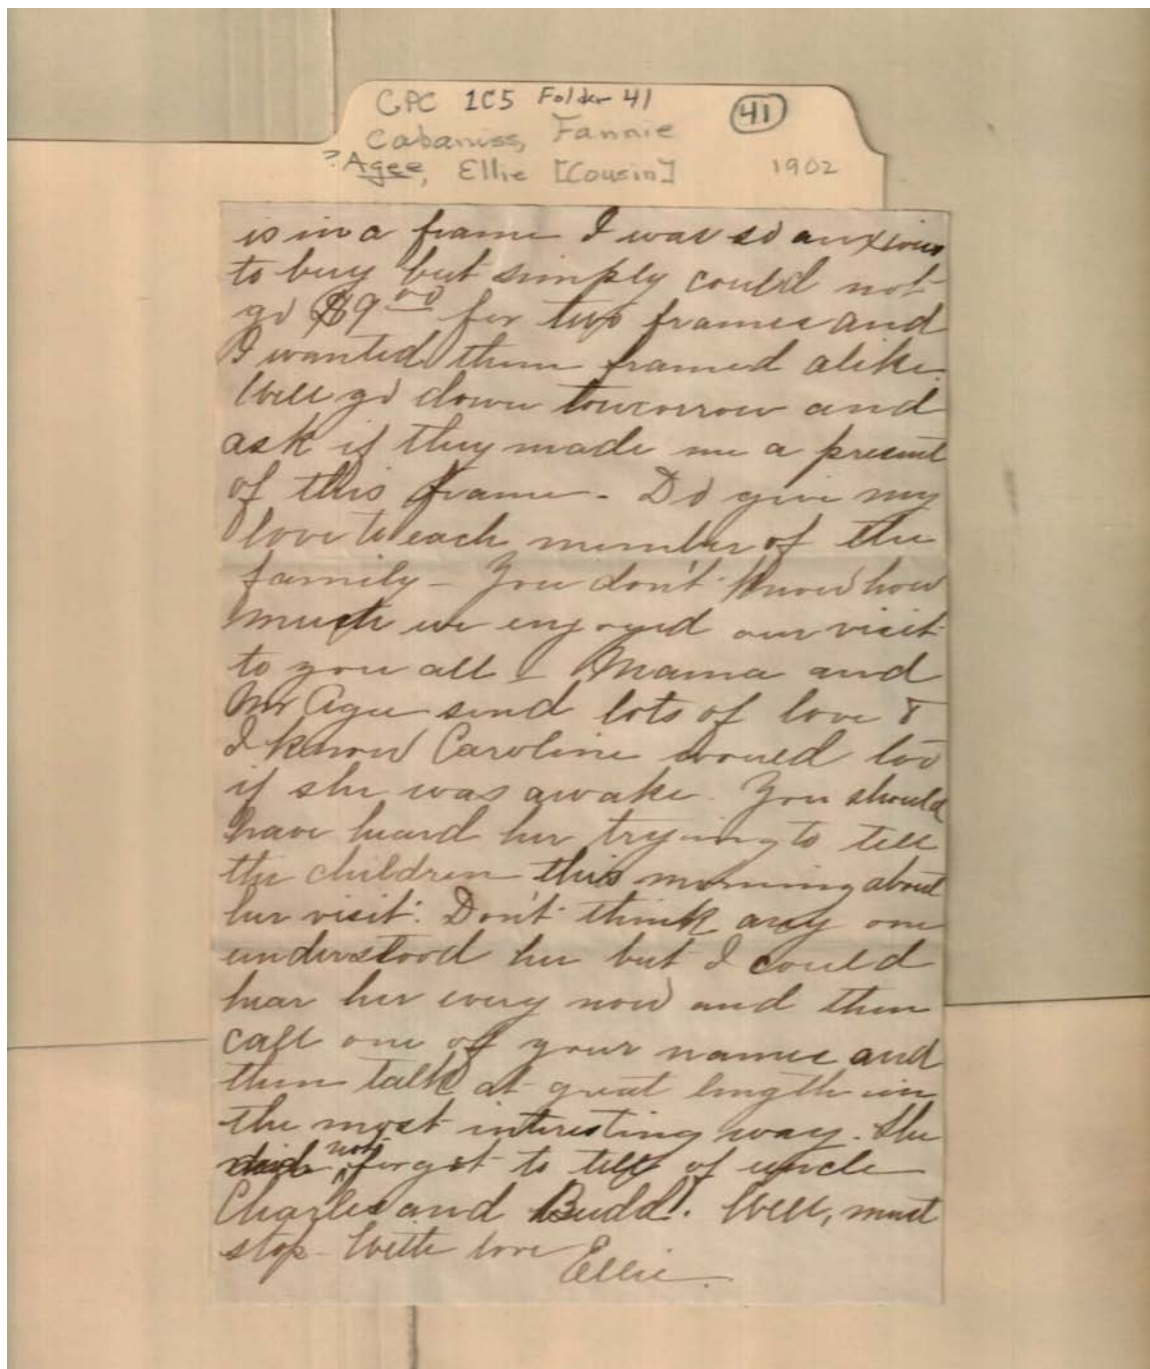 CPC 1C5 Folder 41
41
Cabaniss, Fannie
? Agee, Ellie [Cousin]
1902
is in a frame I was so anxious
to buy but simply could not
go $9.00 for two frames and
I wanted them framed alike.
Will go down tomorrow and
ask if they made me a present
of this frame - Do give my
love to each member of the
family - You don't know how
much we enjoyed our visit
to you all - Mama and
Mr Agee send lots of love &
I know Caroline would too
if she was awake. You should
have heard her trying to tell
the children this morning about
her visit. Don't think any one
understood her but I could
hear her every now and then
call one of your names and
then talk at great length in
the most interesting way. She
did not forget to tell of uncle
Charles and Budd. Well, must
stop - With love
Ellie.